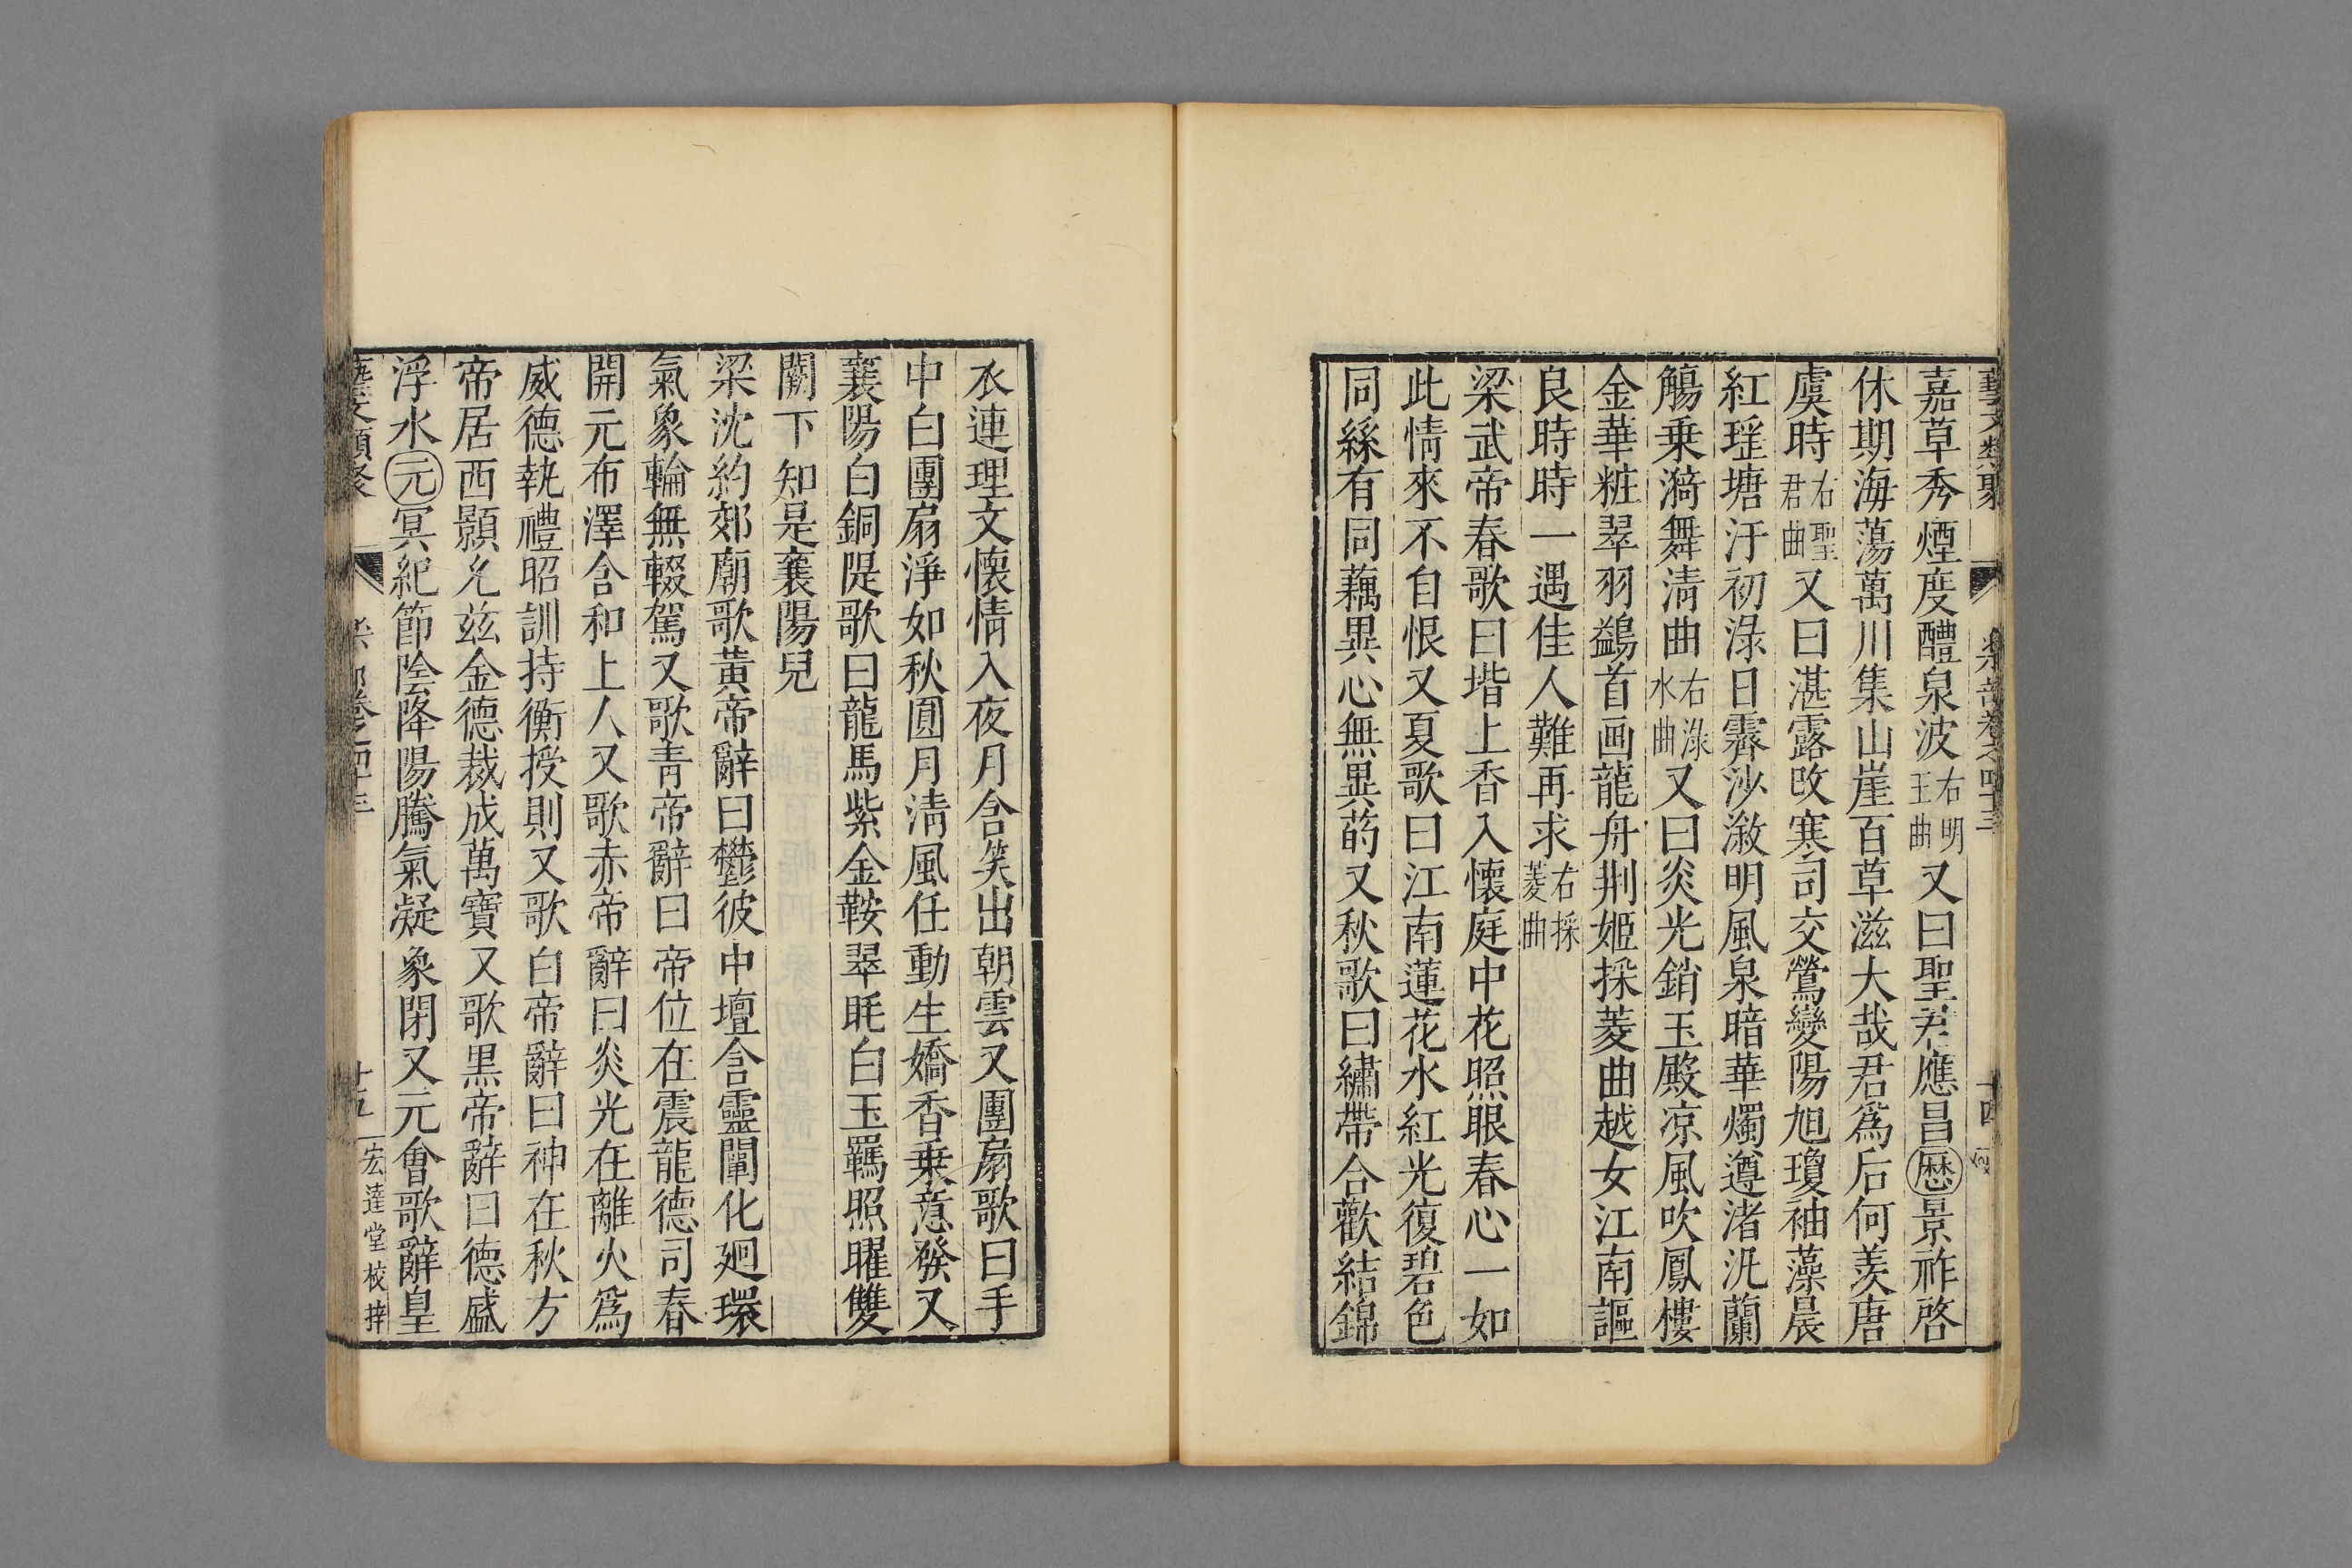 藝文類聚 樂部卷之四十三 十四
嘉草秀煙度醴泉波右明王曲又曰聖君應昌曆景祚啓
休期海蕩萬川集山崖百草滋大哉君爲后何羨唐
虞時右聖君曲又曰湛露改寒司交鶯變陽旭瓊袖藻晨
紅瑶塘汙初渌日霽沙漵明風泉暗華燭遵渚汎蘭
觴乗漪舞淸曲右渌水曲又曰炎光銷玉殿凉風吹鳳樓
金華粧翠羽鷁首画龍舟荆姬採菱曲越女江南謳
良時時一遇佳人難再求右採菱曲
梁武帝春歌曰堦上香入懷庭中花照眼春心一如
此情來不自恨又夏歌曰江南蓮花水紅光復碧色
同絲有同藕異心無異菂又秋歌曰繡帶合歡結錦
衣連理文懷情入夜月含笑出朝雲又團扇歌曰手
中白團扇淨如秋圓月淸風任動生嬌香乗意發又
襄陽白銅隄歌曰龍馬紫金鞍翠眊白玉羈照曜雙
闕下知是襄陽兒
梁沈約郊廟歌黃帝辭曰鬱彼中壇含靈闡化廻環
氣象輪無輟駕又歌青帝辭曰帝位在震龍德司春
開元布澤含和上人又歌赤帝辭曰炎光在離火爲
威德執禮昭訓持衡授則又歌白帝辭曰神在秋方
帝居西顥允兹金德裁成萬寶又歌黑帝辭曰德盛
浮水元冥紀節陰降陽騰氣凝象閉又元會歌辭皇
藝文類聚 卷之四十三 十五 宏達堂校梓